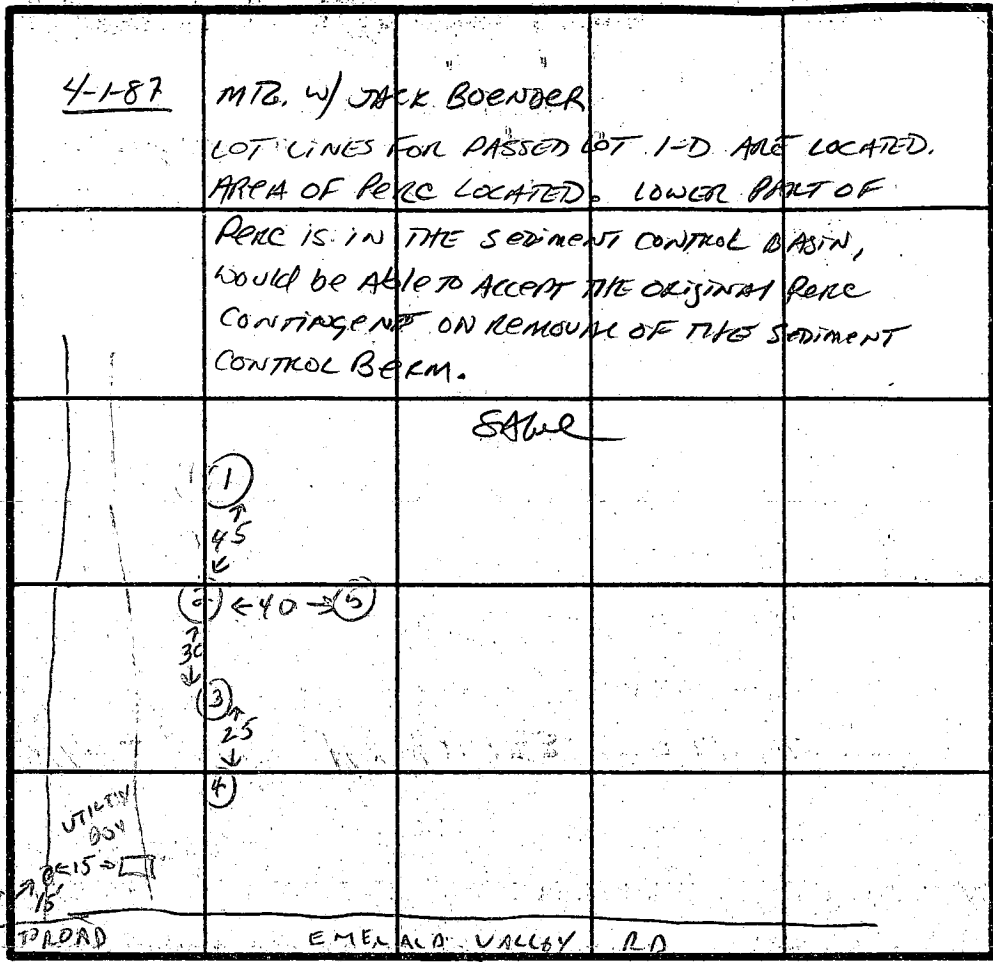 4-1-87 MTG. W/ JACK BOENDER
LOT LINES FOR PASSED LOT 1-D ARE LOCATED.
AREA OF PERC LOCATED. LOWER PART OF
PERC IS IN THE SEDIMENT CONTROL BASIN,
WOULD be Able TO ACCEPT THE ORIGINAL PERC
CONTINGENT ON REMOVAL OF THE SEDIMENT
CONTROL BERM.
1
45
2 ←40→ 5
30
3
25
4
UTILITY
BOX
←15→
15'
TO ROAD EMERALD VALLEY RD